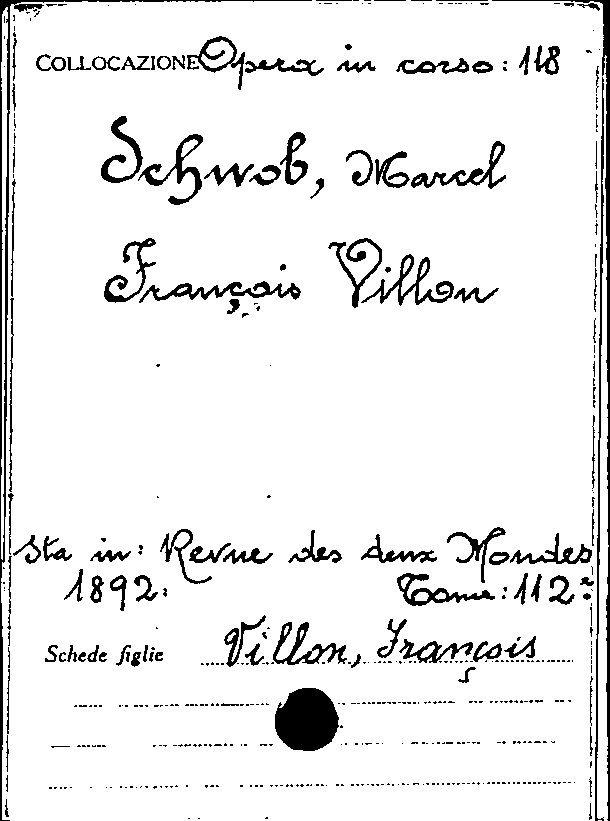 COLLOCAZIONE Opera in corso: 118
Schwob, Marcel
François Villon
Sta in: Revue des deux Mondes
1892. Tome: 112º
Schede figlie Villon, François